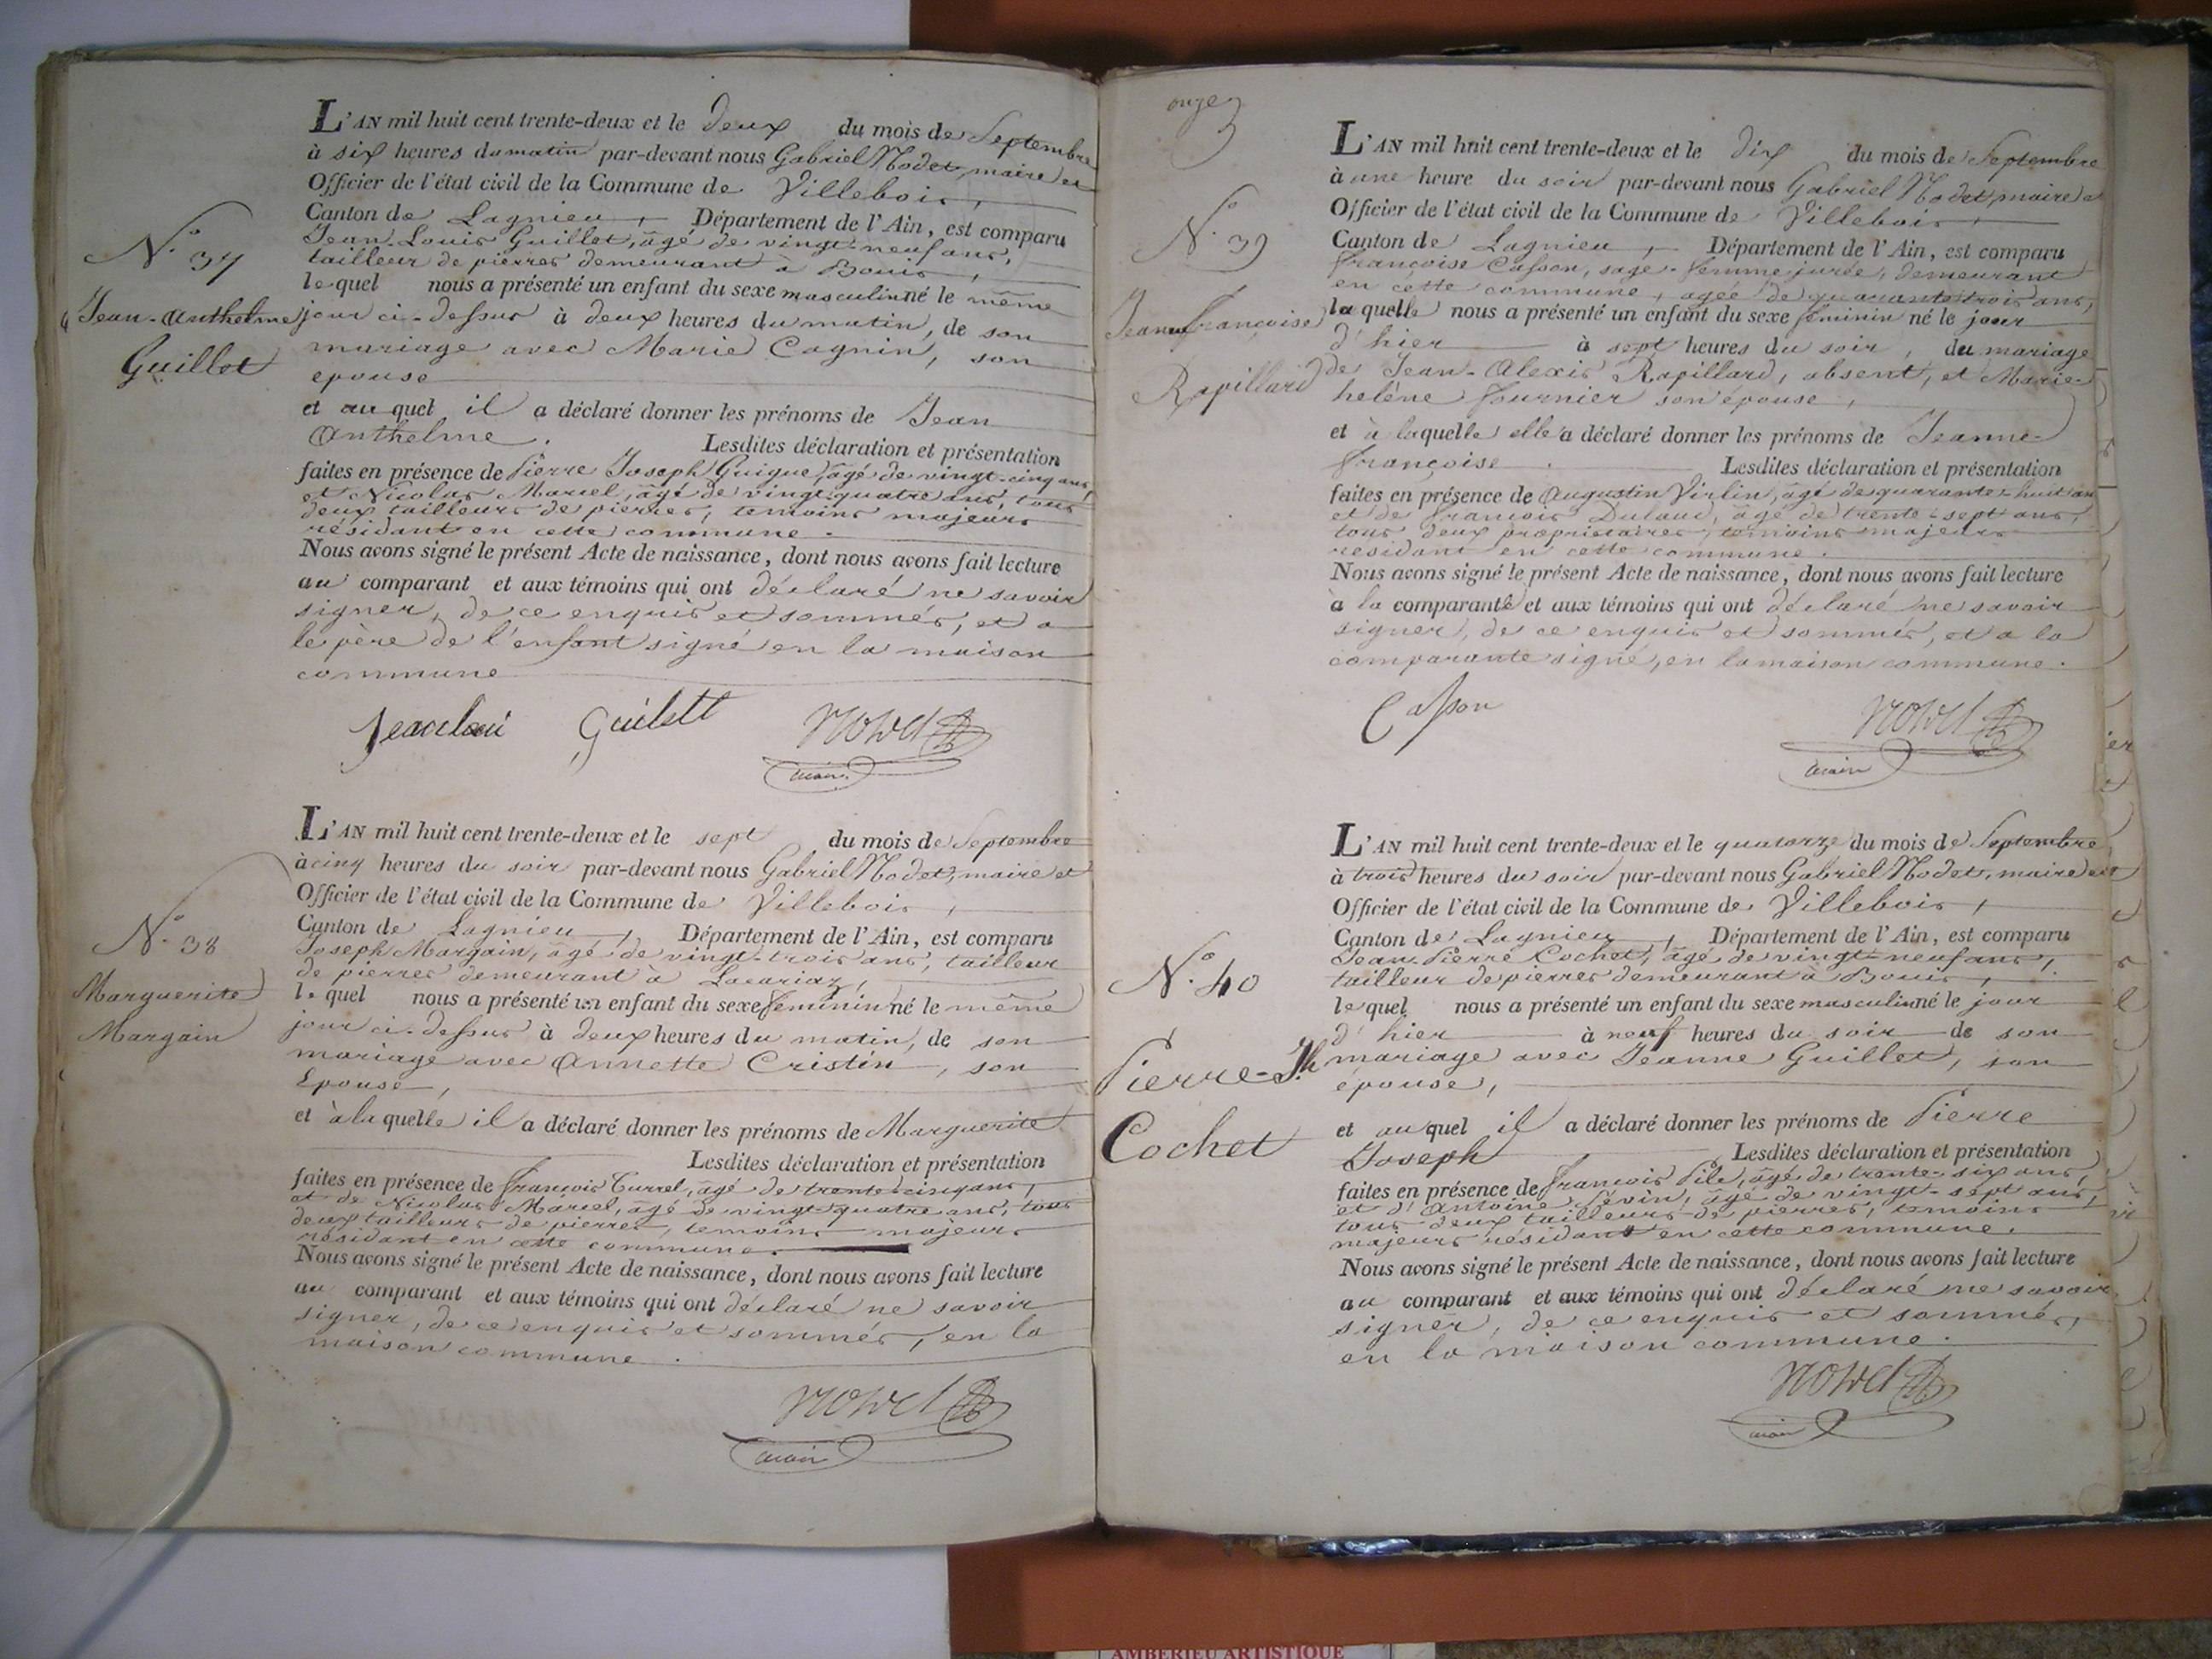 N.o 37
Jean-Anthelme
Guillot
L'AN mil huit cent trente-deux et le deux du mois de Septembre
à six heures du matin par-devant nous Gabriel Nodet, maire et
Officier de l'état civil de la Commune de Villebois,
Canton de Lagnieu, Département de l'Ain, est comparu
Jean-Louis Guillot, âgé de vingt-neuf ans,
tailleur de pierres demeurant à Bouis,
lequel nous a présenté un enfant du sexe masculin né le même
jour ci-dessus à deux heures du matin, de son
mariage avec Marie Cagnin, son
epouse
et auquel il a déclaré donner les prénoms de Jean
Anthelme. Lesdites déclaration et présentation
faites en présence de Pierre Joseph Guigue, âgé de vingt-cinq ans,
et Nicolas Mariel, âgé de vingt-quatre ans, tous
deux tailleurs de pierres, temoins majeurs
résidant en cette commune.
Nous avons signé le présent Acte de naissance, dont nous avons fait lecture
au comparant et aux témoins qui ont déclaré ne savoir
signer, de ce enquis et sommés, et a
le père de l'enfant signé en la maison
commune
Jeanloui Guilett Nodet
maire
N.o 38
Marguerite
Margain
L'AN mil huit cent trente-deux et le sept du mois de Septembre
à cinq heures du soir par-devant nous Gabriel Nodet, maire et
Officier de l'état civil de la Commune de Villebois,
Canton de Lagnieu, Département de l'Ain, est comparu
Joseph Margain, âgé de vingt-trois ans, tailleur
de pierres demeurant à Lacariaz,
lequel nous a présenté un enfant du sexe feminin né le même
jour ci-dessus à deux heures du matin, de son
mariage avec Annette Cristin, son
Epouse,
et à laquelle il a déclaré donner les prénoms de Marguerite
Lesdites déclaration et présentation
faites en présence de François Currel, âgé de trente-cinq ans,
et de Nicolas Mariel, âgé de vingt-quatre ans, tous
deux tailleurs de pierres, temoins majeurs
résidant en cette commune.
Nous avons signé le présent Acte de naissance, dont nous avons fait lecture
au comparant et aux témoins qui ont déclaré ne savoir
signer, de ce enquis et sommés, en la
maison commune.
Nodet
maire
onze
N.o 39
Jeanne françoise
Rapillard
L'AN mil huit cent trente-deux et le dix du mois de Septembre
à une heure du soir par-devant nous Gabriel Nodet, maire et
Officier de l'état civil de la Commune de Villebois,
Canton de Lagnieu, Département de l'Ain, est comparu
françoise Casson, sage-femme jurée, demeurant
en cette commune, agée de quarante trois ans,
laquelle nous a présenté un enfant du sexe feminin né le jour
d'hier à sept heures du soir, du mariage
de Jean-Alexis Rapillard, absent, et Marie-
heléne fournier son épouse,
et à laquelle elle a déclaré donner les prénoms de Jeanne-
françoise. Lesdites déclaration et présentation
faites en présence de Augustin Virlin, âgé de quarante-huit ans
et de francois Dulaud, âgé de trente-sept ans,
tous deux propriétaires, témoins majeurs
residant en cette commune.
Nous avons signé le présent Acte de naissance, dont nous avons fait lecture
à la comparante et aux témoins qui ont déclaré ne savoir
signer, de ce enquis et sommés, et a la
comparante signé, en la maison commune.
Casson Nodet
maire
N.o 40
Pierre-Jh
Cochet
L'AN mil huit cent trente-deux et le quatorze du mois de Septembre
à trois heures du soir par-devant nous Gabriel Nodet, maire et
Officier de l'état civil de la Commune de Villebois,
Canton de Lagnieu, Département de l'Ain, est comparu
Jean-Pierre Cochet, âgé de vingt-neuf ans,
tailleur de pierres demeurant à Bouis,
lequel nous a présenté un enfant du sexe masculin né le jour
d'hier à neuf heures du soir de son
mariage avec Jeanne Guillot, son
épouse,
et auquel il a déclaré donner les prénoms de Pierre
Joseph Lesdites déclaration et présentation
faites en présence de françois Pile, âgé de trente-six ans,
et d'Antoine Sévin, âgé de vingt-sept ans,
tous deux tailleurs de pierres, temoins
majeurs résidant en cette commune.
Nous avons signé le présent Acte de naissance, dont nous avons fait lecture
au comparant et aux témoins qui ont déclaré ne savoir
signer, de ce enquis et sommés,
en la maison commune.
Nodet
maire
AMBERIEU ARTISTIQUE